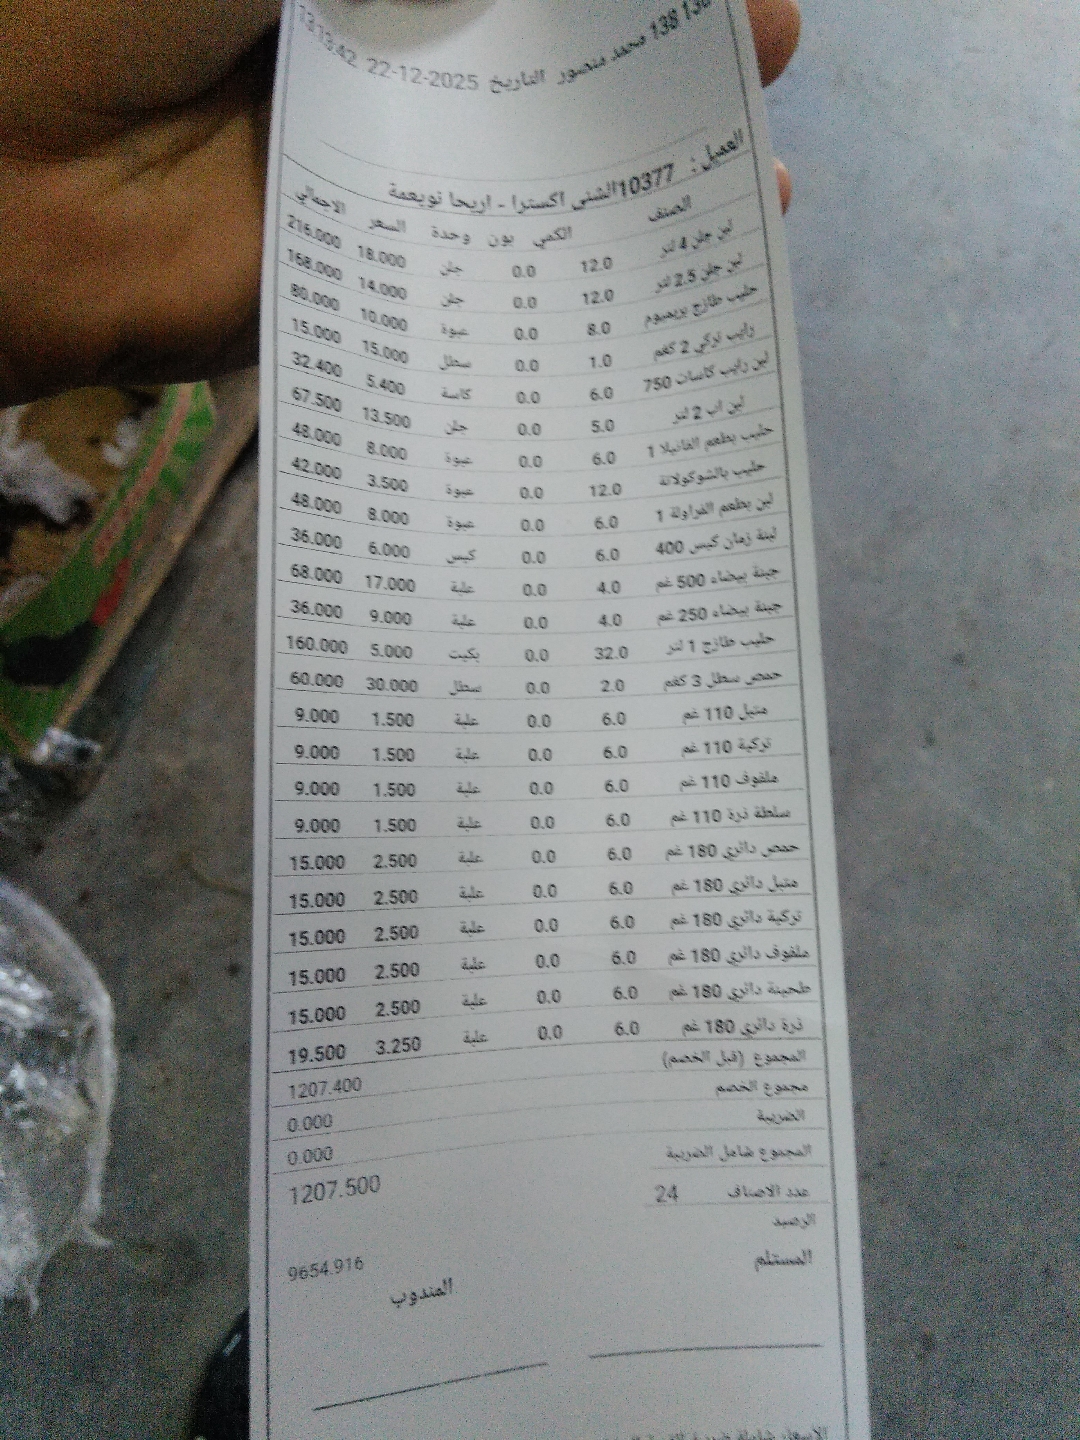 138 محمد منصور التاريخ 22-12-2025 13:13:42
العميل: 10377الشني اكسترا - اريحا نويعمة
الصنف الكمي بون وحدة السعر الاجمالي
لبن جلن 4 لتر 12.0 0.0 جلن 18.000 216.000
لبن جلن 2.5 لتر 12.0 0.0 جلن 14.000 168.000
حليب طازج بريميوم 8.0 0.0 عبوة 10.000 80.000
رايب تركي 2 كغم 1.0 0.0 سطل 15.000 15.000
لبن رايب كاسات 750 6.0 0.0 كاسة 5.400 32.400
لبن اب 2 لتر 5.0 0.0 جلن 13.500 67.500
حليب بطعم الفانيلا 1 6.0 0.0 عبوة 8.000 48.000
حليب بالشوكولاتة 12.0 0.0 عبوة 3.500 42.000
لبن بطعم الفراولة 1 6.0 0.0 عبوة 8.000 48.000
لبنة زمان كيس 400 6.0 0.0 كيس 6.000 36.000
جبنة بيضاء 500 غم 4.0 0.0 علبة 17.000 68.000
جبنة بيضاء 250 غم 4.0 0.0 علبة 9.000 36.000
حليب طازج 1 لتر 32.0 0.0 بكيت 5.000 160.000
حمص سطل 3 كغم 2.0 0.0 سطل 30.000 60.000
متبل 110 غم 6.0 0.0 علبة 1.500 9.000
تركية 110 غم 6.0 0.0 علبة 1.500 9.000
ملفوف 110 غم 6.0 0.0 علبة 1.500 9.000
سلطة ذرة 110 غم 6.0 0.0 علبة 1.500 9.000
حمص دائري 180 غم 6.0 0.0 علبة 2.500 15.000
متبل دائري 180 غم 6.0 0.0 علبة 2.500 15.000
تركية دائري 180 غم 6.0 0.0 علبة 2.500 15.000
ملفوف دائري 180 غم 6.0 0.0 علبة 2.500 15.000
طحينة دائري 180 غم 6.0 0.0 علبة 2.500 15.000
ذرة دائري 180 غم 6.0 0.0 علبة 3.250 19.500
المجموع (قبل الخصم) 1207.400
مجموع الخصم 0.000
الضريبة 0.000
المجموع شامل الضريبة 1207.500
عدد الاصناف 24
الرصيد 9654.916
المستلم المندوب
الاسعار شاملة ضريبة